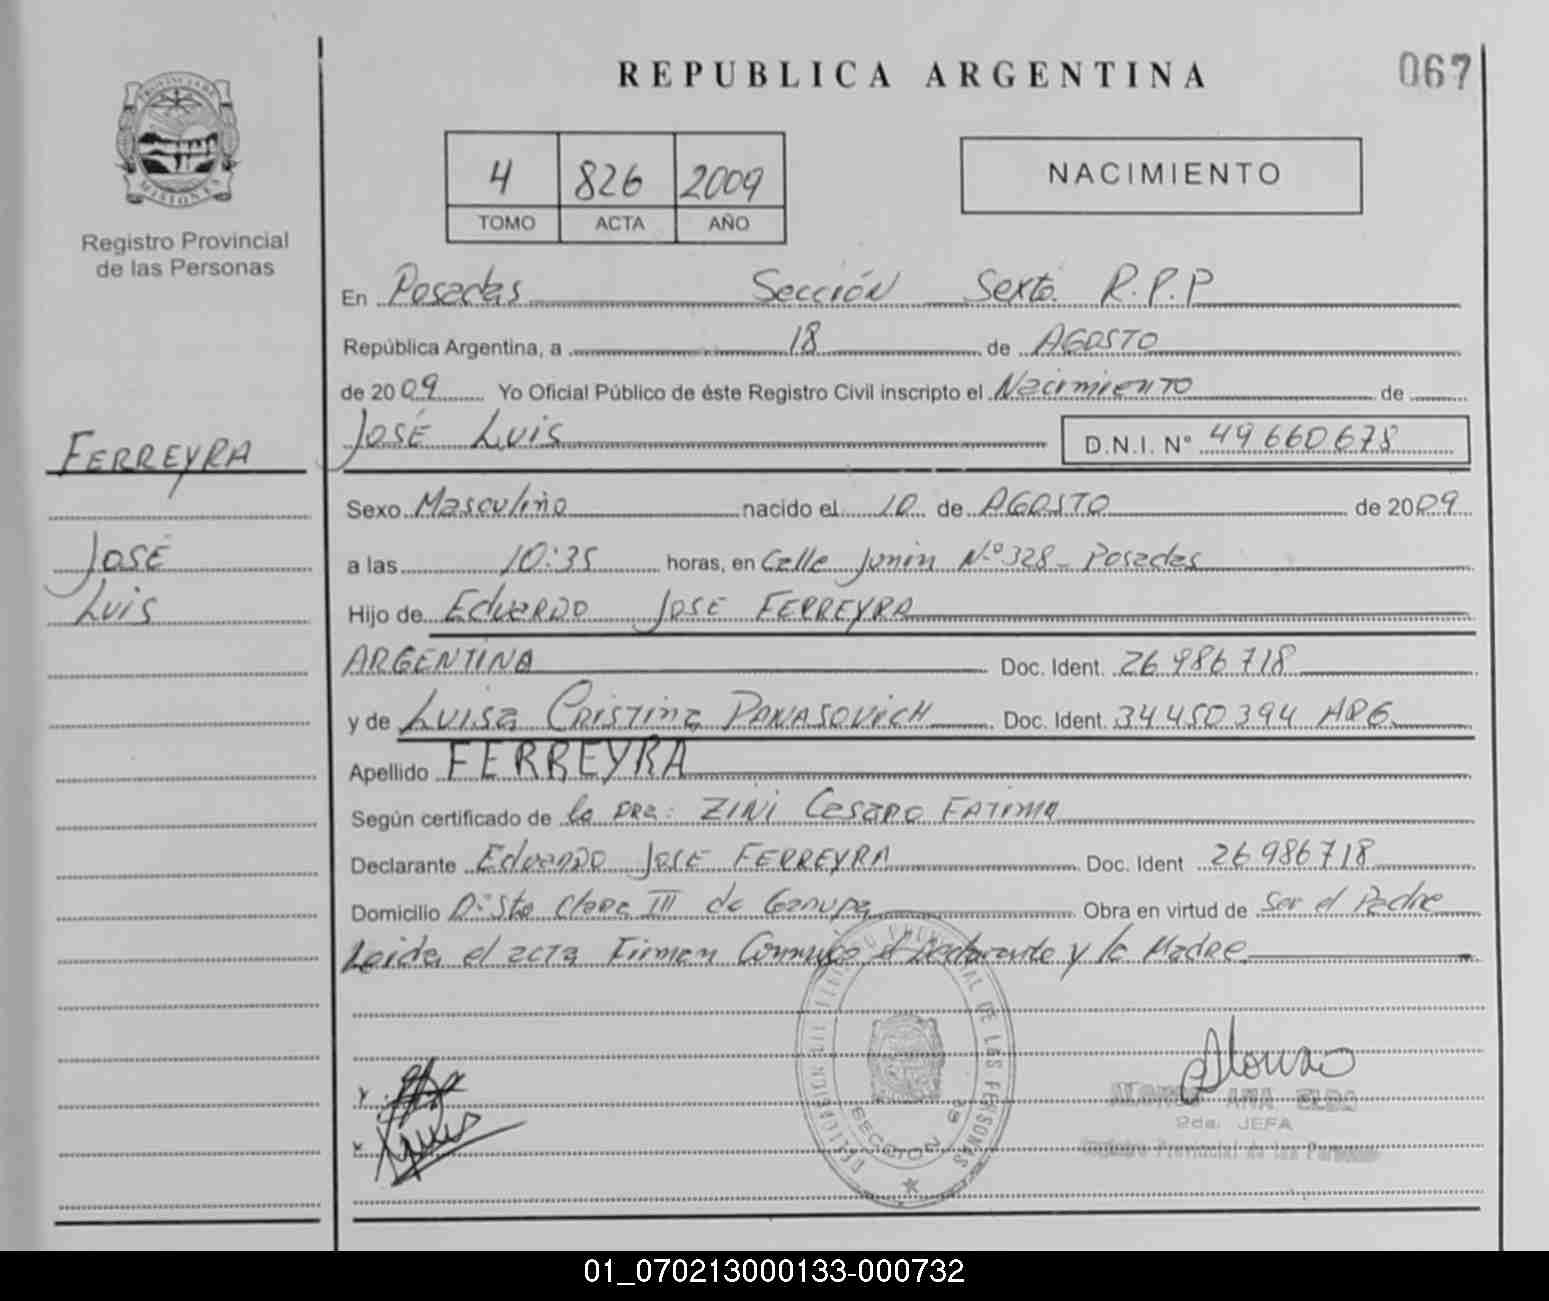 REPUBLICA ARGENTINA
067
PROVINCIA DE
MISIONES
Registro Provincial
de las Personas
4 826 2009
TOMO ACTA AÑO
NACIMIENTO
En Posadas Sección Sexta R.P.P
República Argentina, a 18 de AGOSTO
de 2009 Yo Oficial Público de éste Registro Civil inscripto el Nacimiento de
FERREYRA
JOSÉ LUIS D.N.I. Nº 49660678
Sexo Masculino nacido el 10 de AGOSTO de 2009
JOSÉ
a las 10:35 horas, en Calle Junin Nº 328 - Posadas
LUIS
Hijo de Eduardo José FERREYRA
ARGENTINA Doc. Ident. 26986718
y de Luisa Cristina PANASOVICH Doc. Ident. 34450394 ARG
Apellido FERREYRA
Según certificado de la DRa: ZINI Cesaro FATIMA
Declarante Eduardo José FERREYRA Doc. Ident 26986718
Domicilio Santa Clara III de Garupa Obra en virtud de Ser el Padre
Leida el acta Firman Conmigo el Declarante y la Madre
PROVINCIAL DE LAS PERSONAS
SECCION 6a
Alonso
ALONSO ANA ELBA
2da. JEFA
Registro Provincial de las Personas
01_070213000133-000732